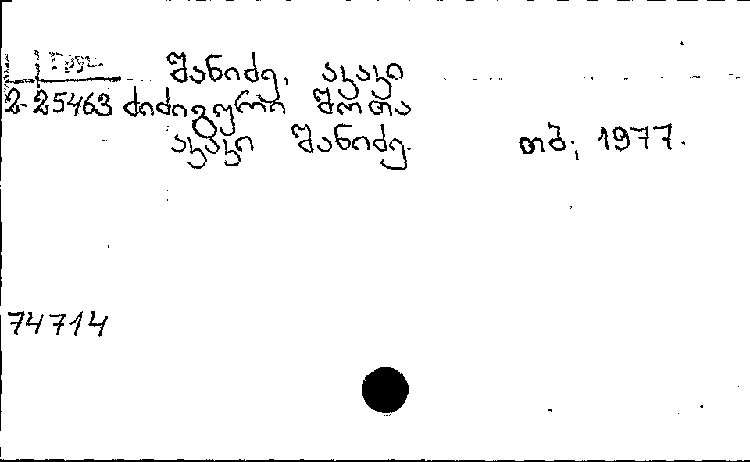 Груз. შანიძე, აკაკი
2-25463 ძიძიგური შოთა
აკაკი შანიძე. თბ., 1977.
74714